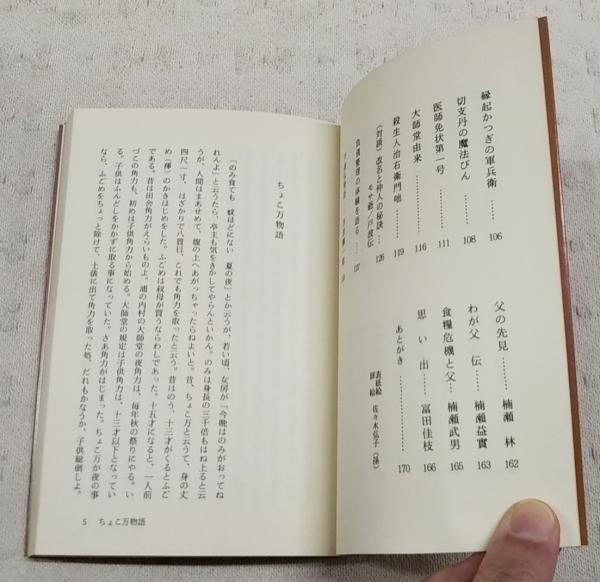 縁起かつぎの軍兵衛……… 106
切支丹の魔法びん……… 108
医師免状第一号……… 111
大師堂由来……… 116
殺生人治右衛門咄……… 119
〈対談〉改名と仲人の秘訣… 126
負債整理の体験を語る…… 137
父の先見……… 楠瀬 林 162
わが父伝……… 楠瀬益實 163
食糧危機と父… 楠瀬武男 165
思い出……… 冨田佳枝 166
あとがき……… 170
表紙絵
扉絵 佐々木弘子(孫)
ちょこ万物語
「のみ食ても 蚊ほどにない 夏の夜」とか云うが、若い頃、女房が「今晩はのみがおってね
れんよ」と云うたら、卒主も気をきかしてやらんといかん。のみは身長の三千倍もはね上ると云
うが、人間はまあせめて、腹の上へあがっちゃったらねよいと。昔、ちょこ万と云うて、身の丈
四尺一寸、はざかりで八貫目、これでも角力を取ったと云う。昔はのう、十三才がくるとふご
め(褌)のかきはじめをした。ふごめは叔母が買うならわしであった。十五才になると、一人前
である。昔は田舎角力がえらいものよ。浦の内村の大師堂の夜角力は、毎年秋の祭りにやる。い
づこの角力も、初めは子供角力から始める。大師堂の規定は子供角力は、十三才以下となってい
る。子供はふんどしをかかずに取る事になっていた。さあ角力がはじまった。ちょこ万が夜の事
なら、ふごめをちょっと除けて、土俵に出て角力を取った処、だれもかなうか。子供総倒しよ。
5 ちょこ万物語